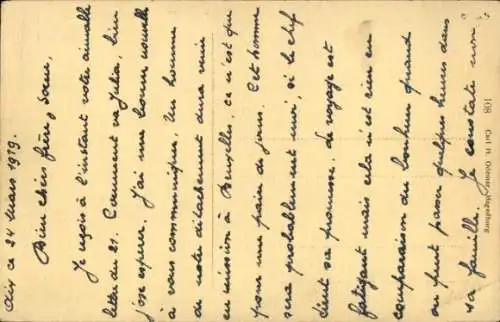 Aix ce 24 Mars 1919.
Bien chers frère, soeur,
Je reçois à l'instant votre aimable
lettre du 21. Comment va Julia, bien
j'ose espérer. J'ai une bonne nouvelle
à vous communiquer. Un homme
de notre détachement devra venir
en mission à Bruxelles, ce n'est que
pour une paire de jours. Cet homme
sera probablement moi, si le chef
tient sa promesse. Le voyage est
fatigant mais cela n'est rien en
comparaison du bonheur quand
on peut passer quelques heures dans
sa famille. Je constate non
108 Carl H. Odemar, Magdeburg